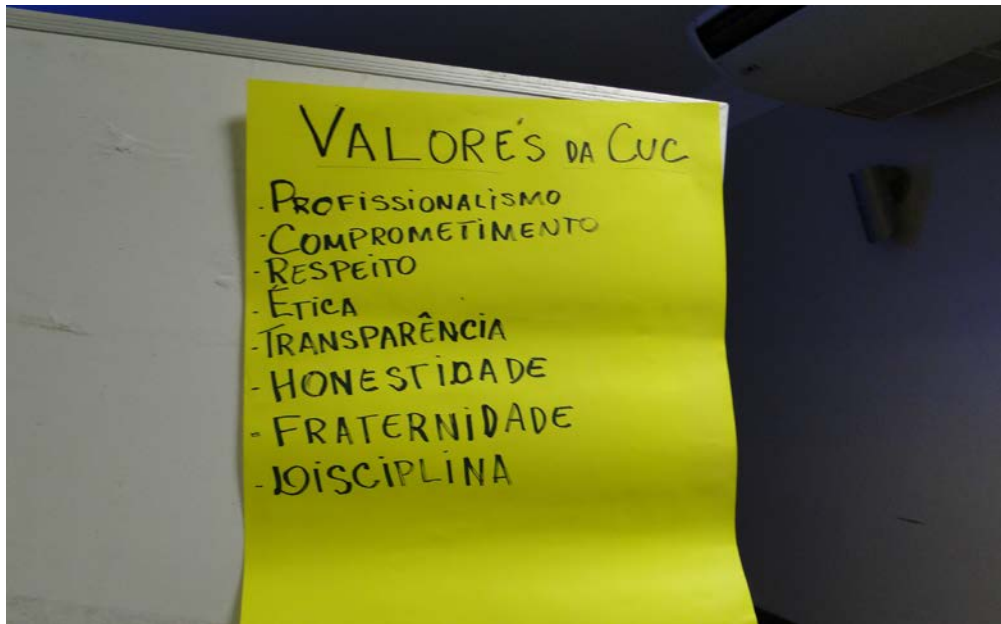 VALORE'S DA CUC
. PROFiSSiONALiSMO
. COMPROMETiMENTO
- RESPEiTO
. ÉTiCA
- TRANSPARÊNCiA
- HONESTiDADE
- FRATERNiDADE
- DiSCiPLiNA